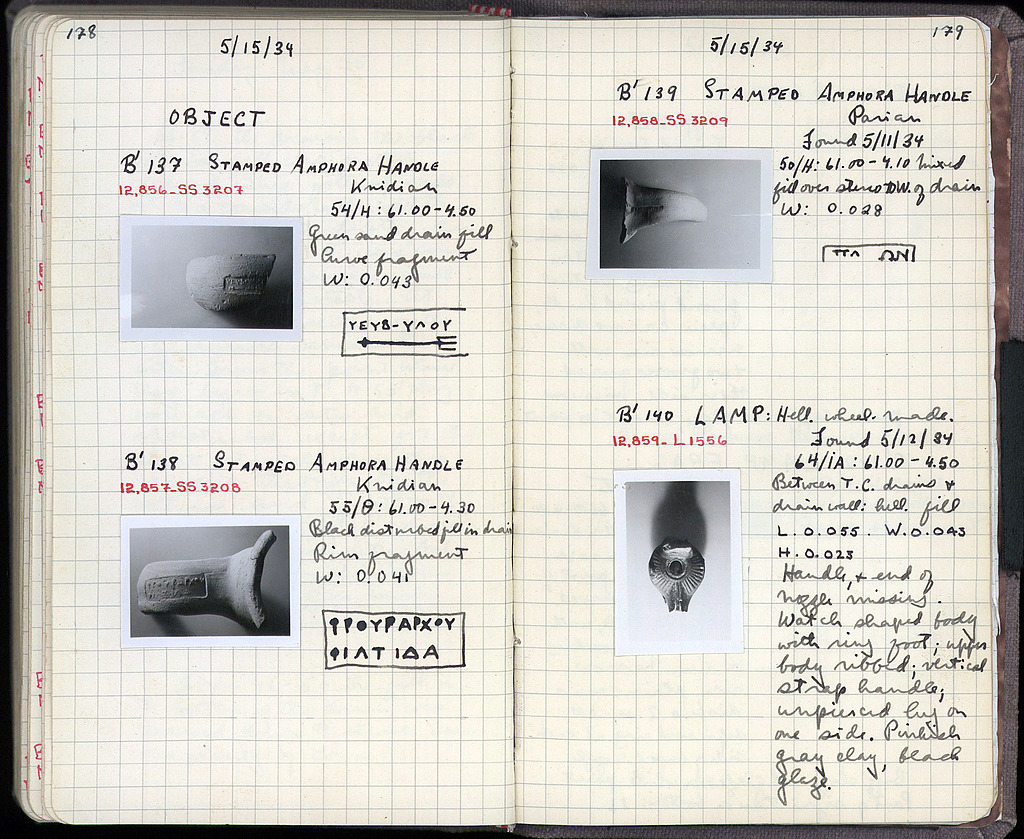 178
5/15/34
OBJECT
B' 137 STAMPED AMPHORA HANDLE
12,856-SS 3207
Knidian
54/H: 61.00-4.50
Green sand drain fill
Curve fragment
W: 0.043
ΥΕΥΒ-ΥΛΟΥ
B' 138 STAMPED AMPHORA HANDLE
12,857-SS 3208
Knidian
55/Θ: 61.00-4.30
Black disturbed fill in drain
Rim fragment
W: 0.041
ΦΡΟΥΡΑΡΧΟΥ
ΦΙΛΤΙΔΑ
179
5/15/34
B' 139 STAMPED AMPHORA HANDLE
12,858-SS 3209
Parian
Found 5/11/34
50/H: 61.00-4.10 mixed
fill over stereo W. of drain
W: 0.028
ΠΑ ΩΝ
B' 140 LAMP: Hell. wheel-made.
12,859-L 1556
Found 5/12/34
64/ΙΑ: 61.00-4.50
Between T.C. drains &
drain wall: hell. fill
L. 0.055. W. 0.043
H. 0.023
Handle, + end of
nozzle missing.
Watch shaped body
with ring foot; upper
body ribbed; vertical
strap handle;
unpierced lug on
one side. Pinkish
gray clay, black
glaze.